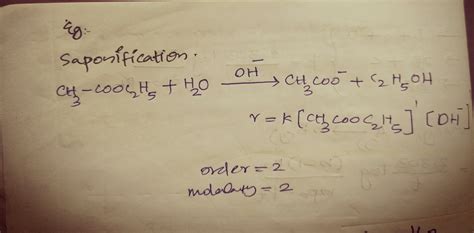 Eg:-
Saponification.
CH₃-COOC₂H₅ + H₂O —OH⁻→ CH₃COO⁻ + C₂H₅OH
r = k [CH₃COOC₂H₅]' [OH⁻]
order = 2